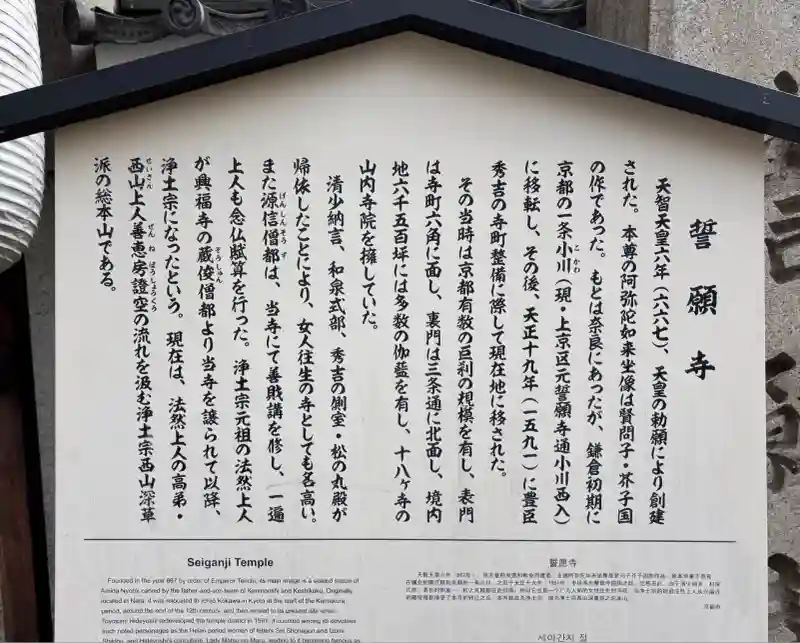 誓願寺
天智天皇六年（六六七）、天皇の勅願により創建
された。本尊の阿弥陀如来坐像は賢問子・芥子国
の作であった。もとは奈良にあったが、鎌倉初期に
京都の一条小川（現・上京区元誓願寺通小川西入）
こかわ
に移転し、その後、天正十九年（一五九一）に豊臣
秀吉の寺町整備に際して現在地に移された。
その当時は京都有数の巨刹の規模を有し、表門
は寺町六角に面し、裏門は三条通に北面し、境内
地六千五百坪には多数の伽藍を有し、十八ヶ寺の
山内寺院を擁していた。
清少納言、和泉式部、秀吉の側室・松の丸殿が
帰依したことにより、女人往生の寺としても名高い。
また源信僧都は、当寺にて善財講を修し、一遍
げんしんそうず
上人も念仏賦算を行った。浄土宗元祖の法然上人
が興福寺の蔵俊僧都より当寺を譲られて以降、
ぞうしゅん
浄土宗になったという。現在は、法然上人の高弟・
西山上人善恵房證空の流れを汲む浄土宗西山深草
せいざん ぜんねぼうしょうくう
派の総本山である。
Seiganji Temple
Founded in the year 667 by order of Emperor Tenchi, its main image is a seated statue of
Amida Nyorai carved by the father-and-son team of Kenmonshi and Keshikoku. Originally
located in Nara, it was relocated to Ichijo Kokawa in Kyoto at the start of the Kamakura
period, around the end of the 12th century, and then moved to its present site when
Toyotomi Hideyoshi redeveloped the temple district in 1591. It counted among its devotees
such noted personages as the Heian period women of letters Sei Shonagon and Izumi
誓愿寺
세이간지 절